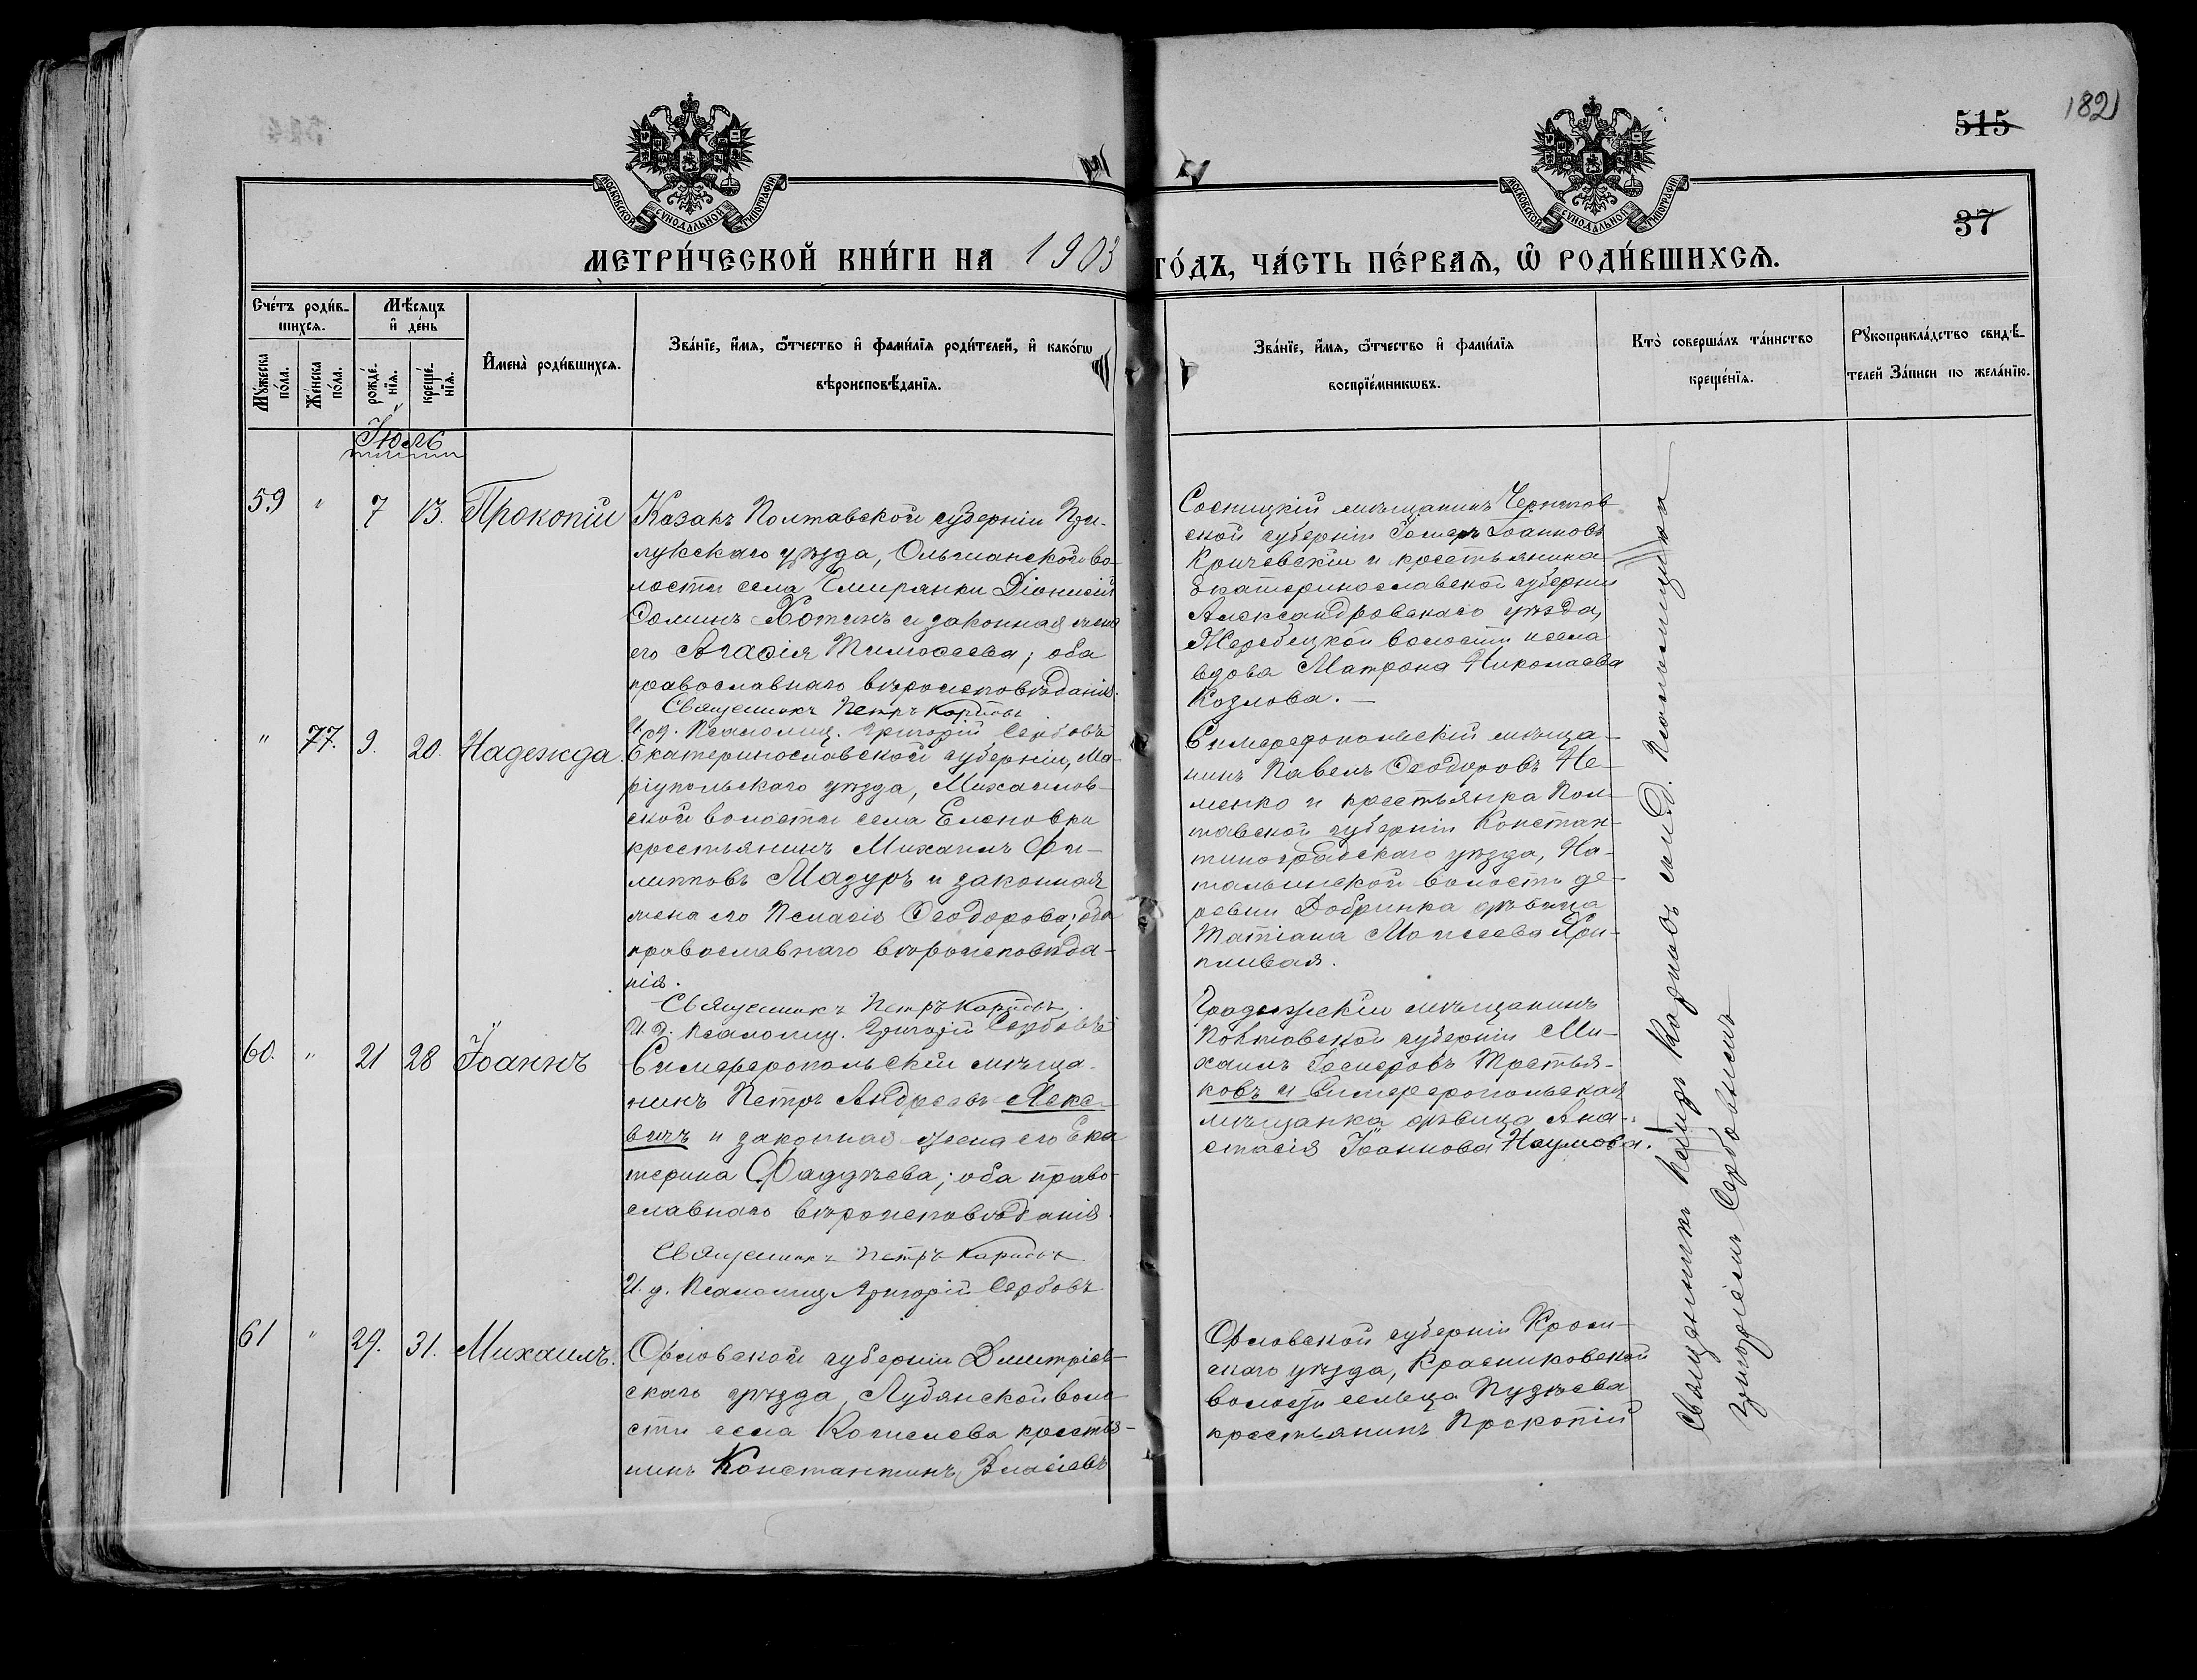 182
515
37
МОСКОВСКОЙ СУНОДАЛЬНОЙ ТИПОГРАФІИ
МОСКОВСКОЙ СУНОДАЛЬНОЙ ТИПОГРАФІИ
МЕТРИ́ЧЕСКОЙ КНИ́ГИ НА 1903 ГО́ДЪ, ЧА́СТЬ ПЕ́РВАЯ, Ѡ РОДИ́ВШИХСЯ.
Сче́тъ роди́в-
шихся.
Мѣ́сяцъ
и҆ де́нь
Мꙋ́жеска
по́ла.
Же́нска
по́ла.
рожде́-
нїя.
креще́-
нїя.
И҆мена̀ роди́вшихся.
Зва́нїе, и҆́мя, ѻ҆́тчество и҆ фами́лїя роди́телей, и҆ како́гѡ
вѣроисповѣ́данїя.
Зва́нїе, и҆́мя, ѻ҆́тчество и҆ фами́лїя
воспрїе́мникѡвъ.
Кто̀ соверша́лъ та́инство
креще́нїя.
Рꙋкоприкла́дство свидѣ́-
телей за́писи по жела́нїю.
Іюль
59 " 7 13. Прокопій
Казакъ Полтавской губерніи При-
лукскаго уѣзда, Ольшанской во-
лости села Діонисій
Хотинъ и законная жена
его Агаѳія Тимоѳеева; оба
православнаго вѣроисповѣданія.
Священникъ Петръ Карповъ
И. д. Псаломщ. Григорій Сербовъ
Сосницкій мѣщанинъ Чернигов
ской губерніи Іоанновъ
Кричевскій и крестьянка
Екатеринославской губерніи
Александровскаго уѣзда,
Жеребецкой волости и села
вдова Матрона Николаева
Козлова. —
" 77. 9. 20. Надежда.
Екатеринославской губерніи, Ма-
ріупольскаго уѣзда, Михайлов-
ской волости села Еленовки
крестьянинъ Михаилъ Фи-
липповъ Мазуръ и законная
жена его Пелагія Ѳеодорова; оба
православнаго вѣроисповѣда-
нія.
Священникъ Петръ Карповъ
И. д. Псаломщ. Григорій Сербовъ
Симферопольскій мѣща-
нинъ Павелъ Ѳеодоровъ Не-
менко и крестьянка Пол-
тавской губерніи Констан-
тиноградскаго уѣзда, На-
тальинской волости де-
ревни Добринка дѣвица
Татіана Моисеева При-
пливая.
60. " 21 28 Іоаннъ
Симферопольскій мѣща-
нинъ Петръ Андреевъ Лекс-
вичъ и законная жена его Ека
терина Фаддѣева; оба право-
славнаго вѣроисповѣданія.
Священникъ Петръ Карповъ
И. д. Псаломщ. Григорій Сербовъ
Градижскій мѣщанинъ
Полтавской губерніи Ми-
хаилъ Третья-
ковъ и Симферопольская
мѣщанка дѣвица Ана-
стасія Іоаннова Наумова.
61 " 29. 31. Михаилъ.
Орловской губерніи Дмитріев-
скаго уѣзда, Лубянской воло-
сти села крестья-
нинъ Константинъ Власіевъ
Орловской губерніи Кром-
скаго уѣзда, Красниковской
волости сельца Пузѣева
крестьянинъ Прокопій
Священникъ Петръ Карповъ съ и. д. Псаломщика
Григоріемъ Сербовымъ